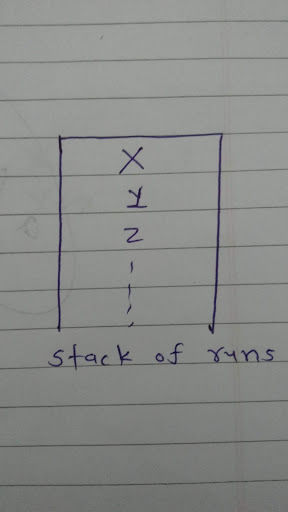 X
Y
Z
stack of runs